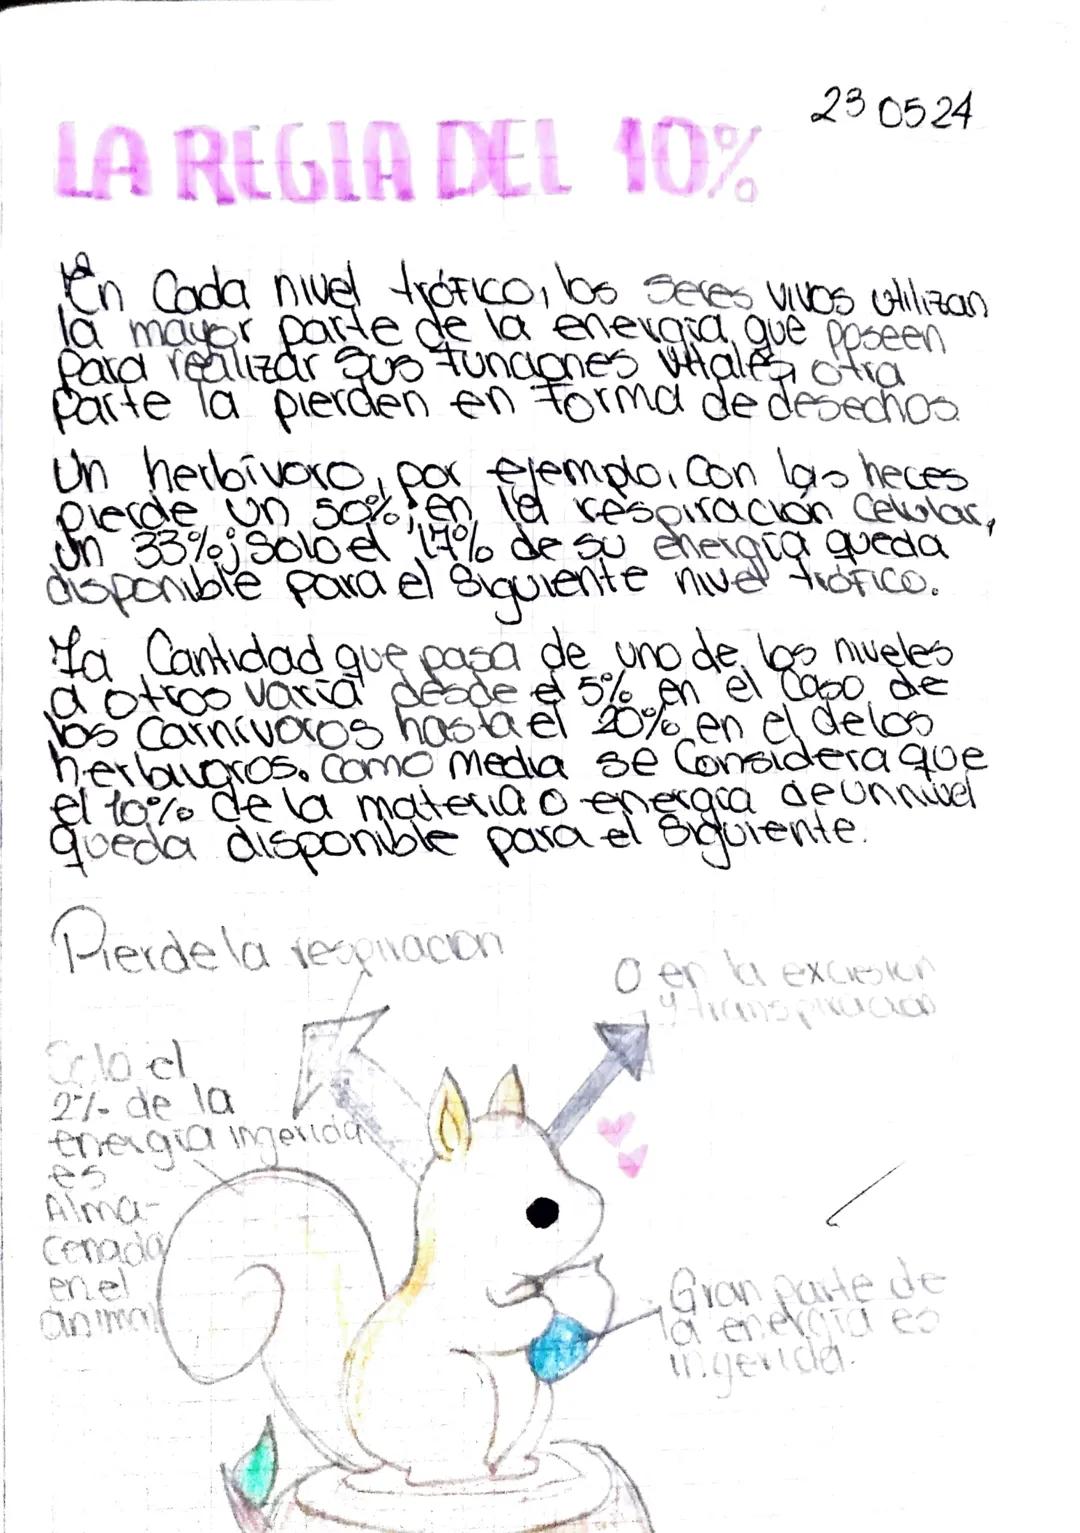 23 05 24
LA REGLA DEL 10%
En Cada nivel trófico, los seres vivos utilizan
la mayor parte de la energía que poseen
para realizar sus funciones vitales, otra
parte la pierden en forma de desechos.
Un herbívoro, por ejemplo, con las heces
pierde un 50%; en la respiración celular,
un 33%; solo el 17% de su energía queda
disponible para el siguiente nivel trófico.
La Cantidad que pasa de uno de los niveles
a otros varia desde el 5% en el caso de
los carnívoros hasta el 20% en el de los
herbívoros. como media se Considera que
el 10% de la materia o energía de un nivel
queda disponible para el siguiente.
Pierde la respiración
O en la excresión
y transpiración
Solo el
2% de la
energía ingerida
es
Alma-
cenada
en el
animal
Gran parte de
la energía es
ingerida.